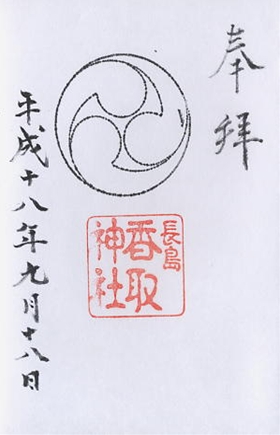 奉拝
長島
香取
神社
平成十八年九月十八日